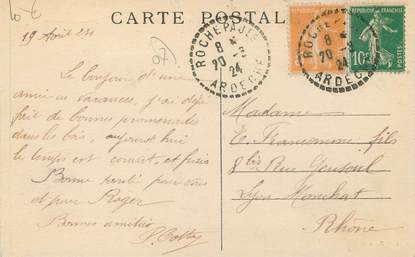 CARTE POSTALE
19 Août 24
Le bonjour d'une
amie en vacances, j'ai déjà
fait de bonnes promenades
dans les bois, aujourd'hui
le temps est couvert et
Bonne santé pour vous
et pour Roger
Bonnes amitiés
ROCHEPAULE
8
20 -8
24
ARDECHE
ROCHEPAULE
8
20 -8
24
ARDECHE
REPUBLIQUE FRANÇAISE
10c
POSTES
Madame
E. fils
8 bis Rue
Lyon Monchat
Rhône